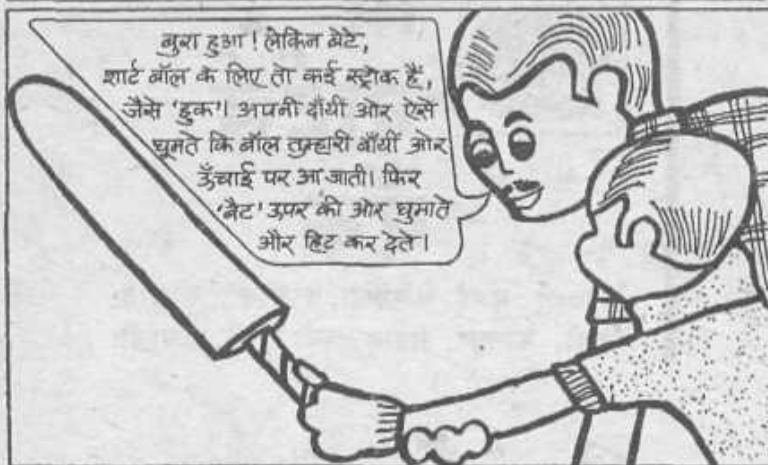 बुरा हुआ! लेकिन बेटे,
शार्ट बॉल के लिए तो कई स्ट्रोक हैं,
जैसे 'हुक'। अपनी दाँयी ओर ऐसे
घूमते कि बॉल तुम्हारी बाँयीं ओर
ऊँचाई पर आ जाती। फिर
'बैट' उपर की ओर घुमाते
और हिट कर देते।